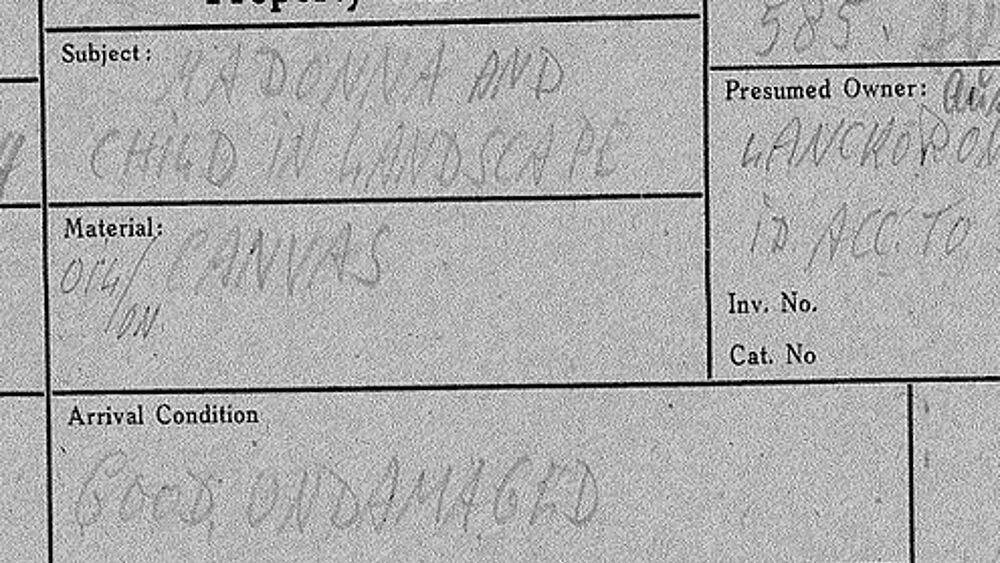 Property
585.
Subject:
MADONNA AND
CHILD IN LANDSCAPE
Presumed Owner:
LANCKORON
ID ACC. TO
Material:
OIL/ON CANVAS
Inv. No.
Cat. No
Arrival Condition
GOOD, UNDAMAGED